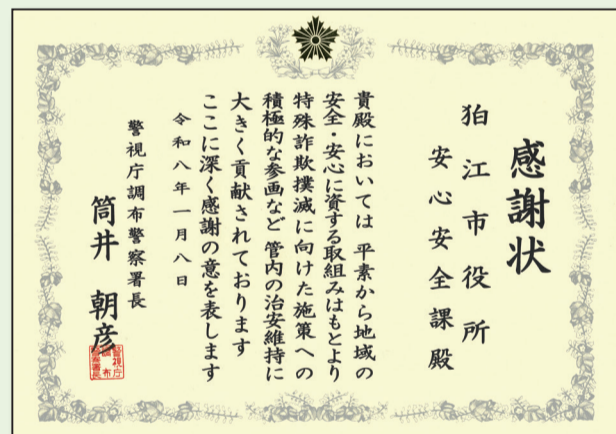 感謝状
狛江市役所
安心安全課殿
貴殿においては 平素から地域の
安全・安心に資する取組みはもとより
特殊詐欺撲滅に向けた施策への
積極的な参画など 管内の治安維持に
大きく貢献されております
ここに深く感謝の意を表します
令和八年一月八日
警視庁調布警察署長
筒井 朝彦
警視庁
調布
警察署長